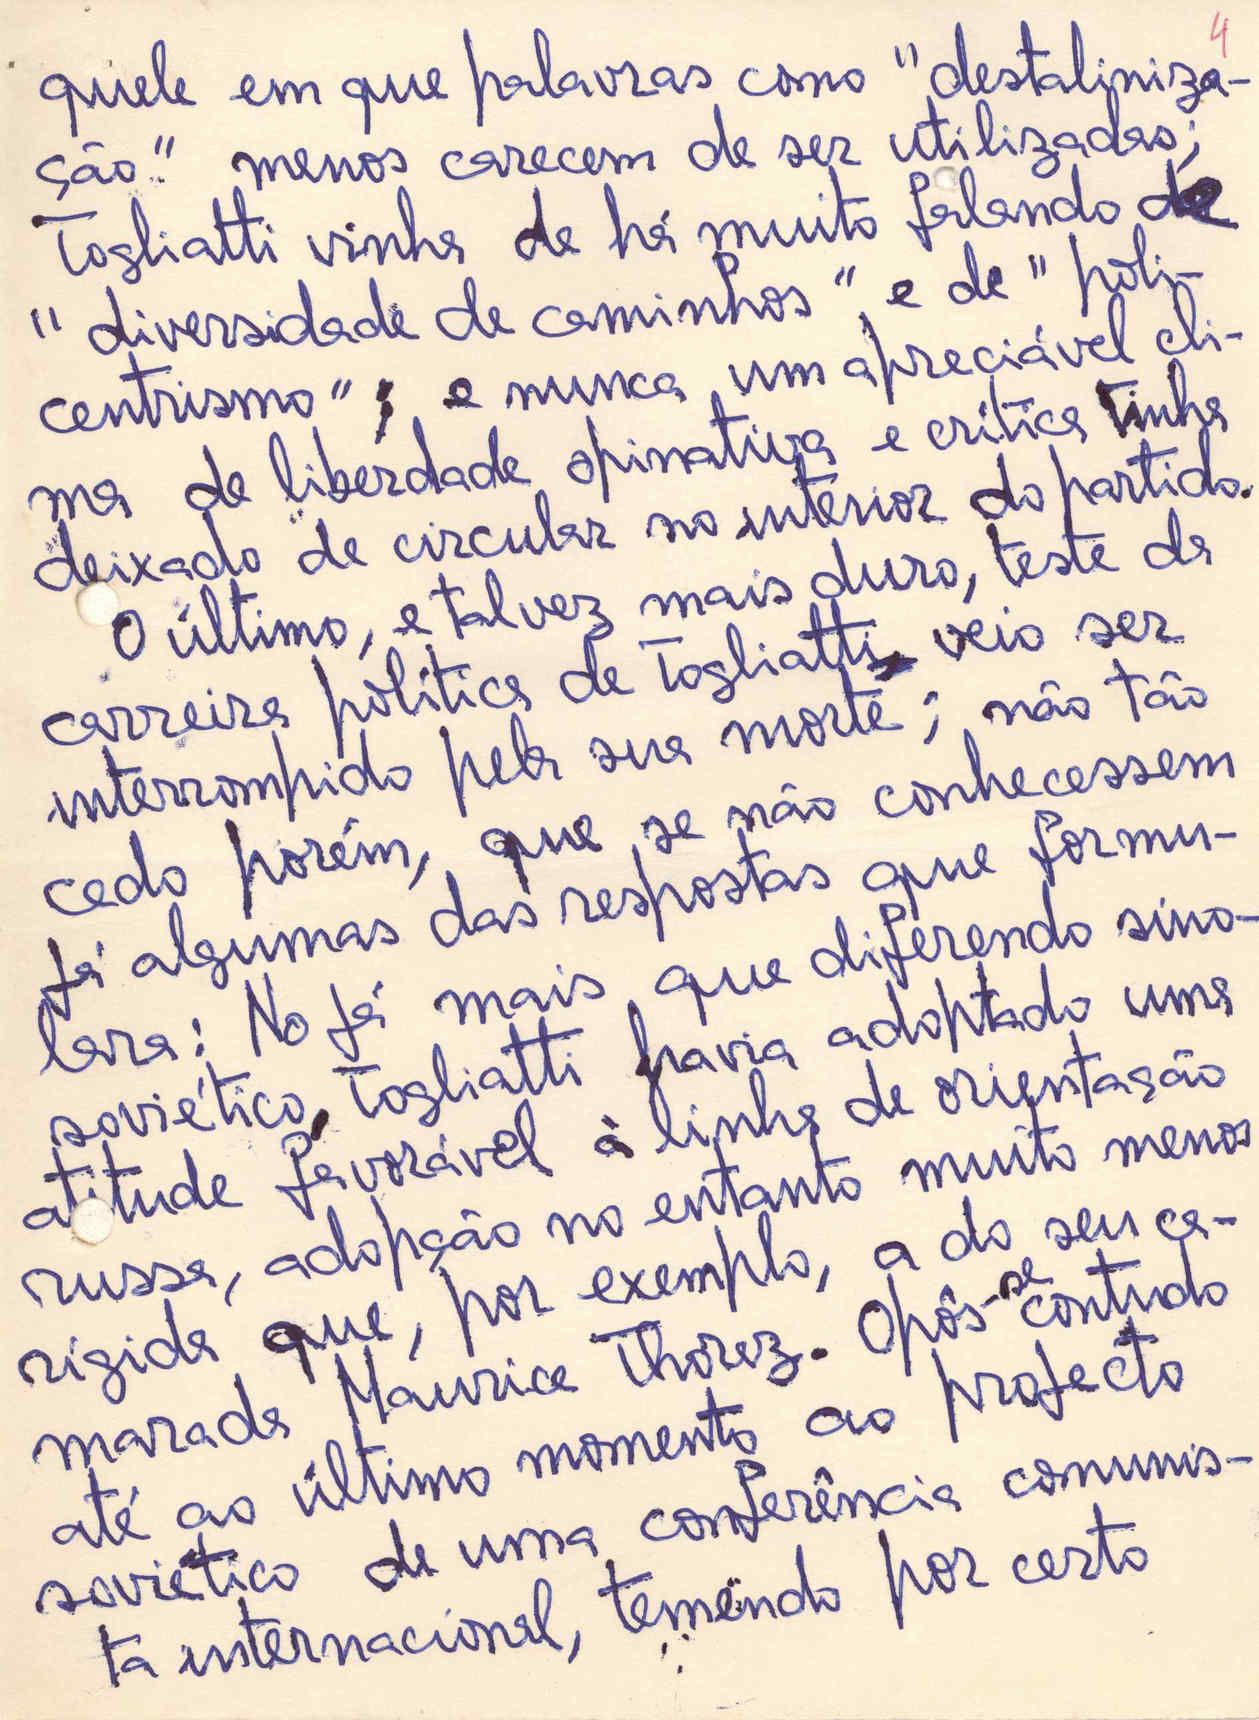 4
quele em que palavras como "destaliniza-
ção" menos carecem de ser utilizadas;
Togliatti vinha de há muito falando de
"diversidade de caminhos" e de "poli-
centrismo"; e nunca um apreciável cli-
ma de liberdade opinativa e crítica tinha
deixado de circular no interior do partido.
O último, e talvez mais duro, teste da
carreira política de Togliatti veio ser
interrompido pela sua morte; não tão
cedo porém, que se não conhecessem
já algumas das respostas que formu-
lara: No já mais que diferendo sino-
soviético, Togliatti havia adoptado uma
atitude favorável à linha de orientação
russa, adopção no entanto muito menos
rígida que, por exemplo, a do seu ca-
marada Maurice Thorez. Opôs-se contudo
até ao último momento ao projecto
soviético de uma conferência comunis-
ta internacional, temendo por certo